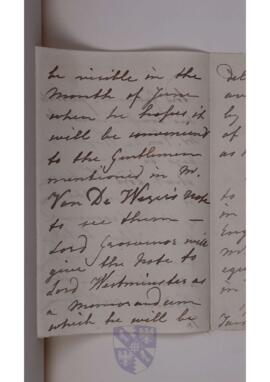 be visible in the
Month of June
when he hopes it
will be convenient
to the Gentlemen
mentioned in M.
Van De Weyer's note
to see them —
Lord Grosvenor will
give the note to
Lord Westminster as
a Memorandum
which he will be
Del
by
of
as
to
in
Eng